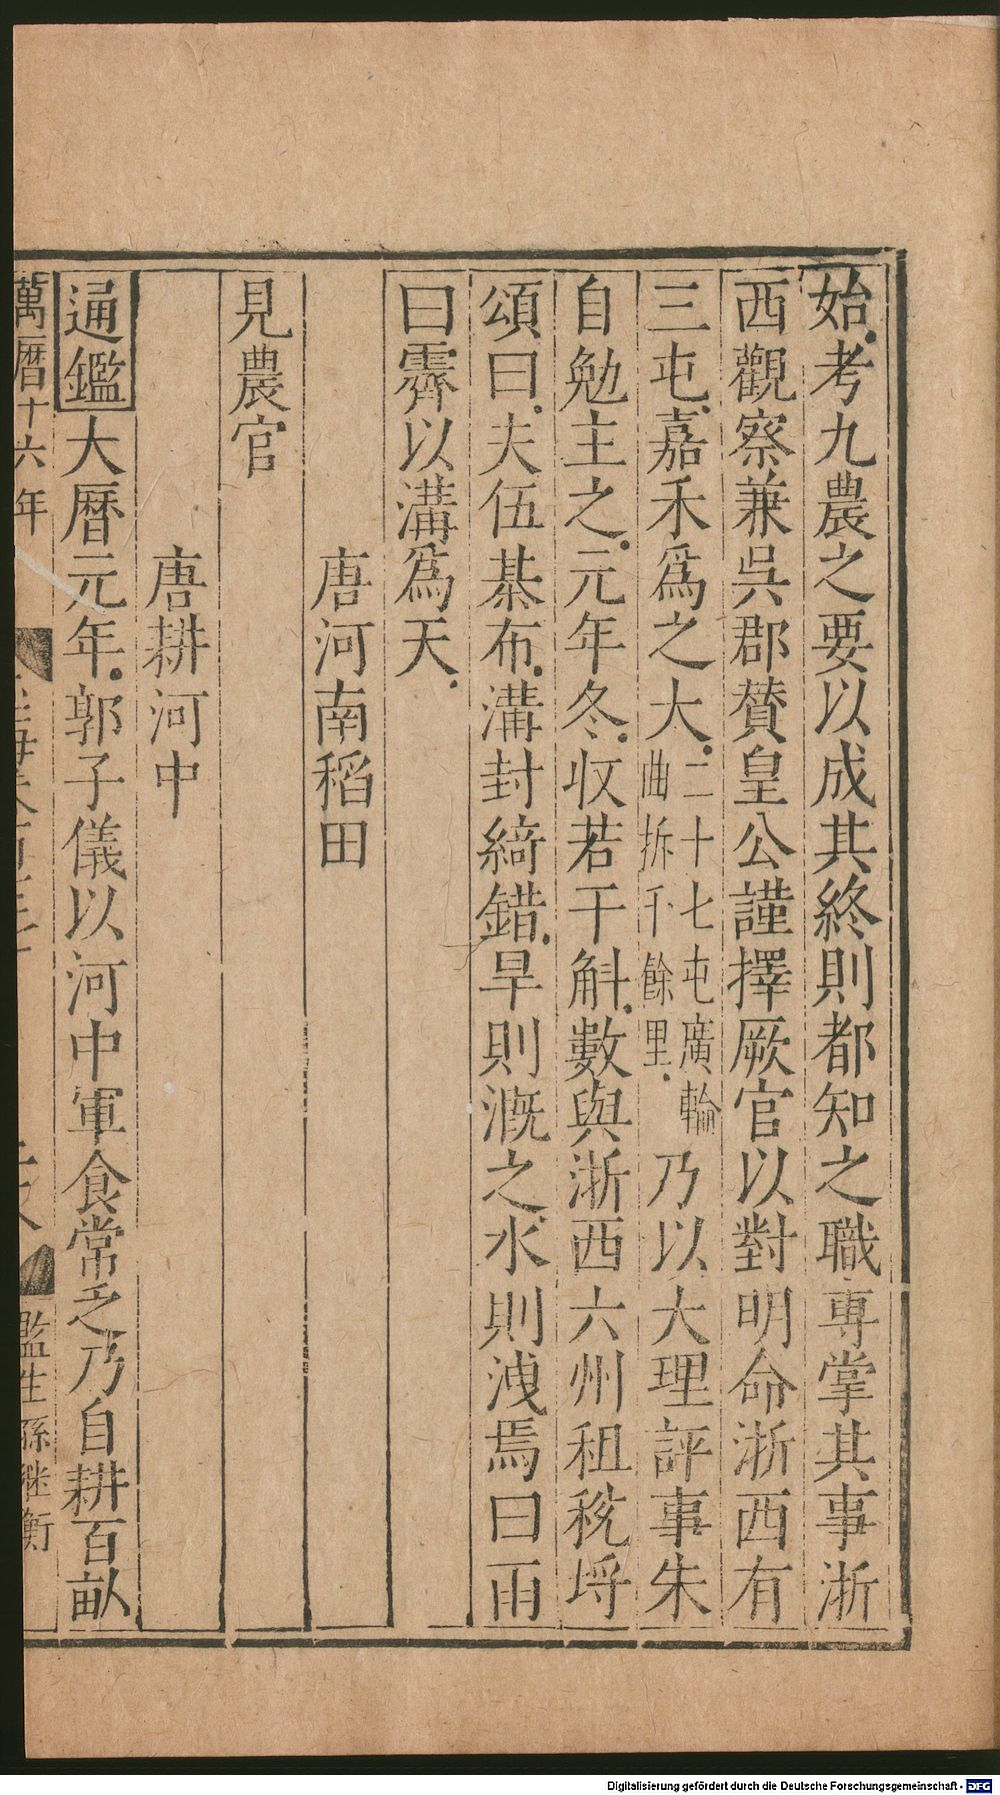 始考九農之要以成其終則都知之職專掌其事浙
西觀察兼吳郡賛皇公謹擇厥官以對明命浙西有
三屯嘉禾爲之大二十七屯廣輪曲拆千餘里乃以大理評事朱
自勉主之元年冬收若干斛數與浙西六州租稅埒
頌曰夫伍棊布溝封綺錯旱則漑之水則洩焉曰雨
曰霽以溝爲天
唐河南稻田
見農官
唐耕河中
通鑑大曆元年郭子儀以河中軍食常乏乃自耕百畝
萬曆十六年
監生孫継衡
Digitalisierung gefördert durch die Deutsche Forschungsgemeinschaft - DFG